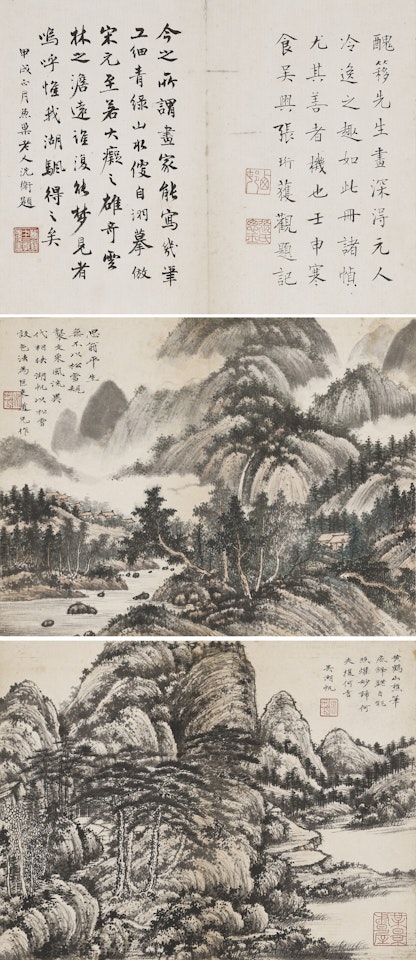 醜簃先生畫深得元人
冷逸之趣如此冊諸幀
尤其善者機也壬申寒
食吳興張珩獲觀題記
今之所謂畫家能寫幾筆
工細青綠山水便自詡摹倣
宋元至若大癡之雄奇雲
林之澹遠誰復能夢見者
嗚呼惟我湖颿得之矣
甲戌正月兼巢老人沈衛題
思翁平生
無不以松雪規
文采風流異
代相湖帆以松雪
設色法為巨來道兄作
黃鶴山樵筆
底自能
妙諦何
夫復何言
吳湖帆